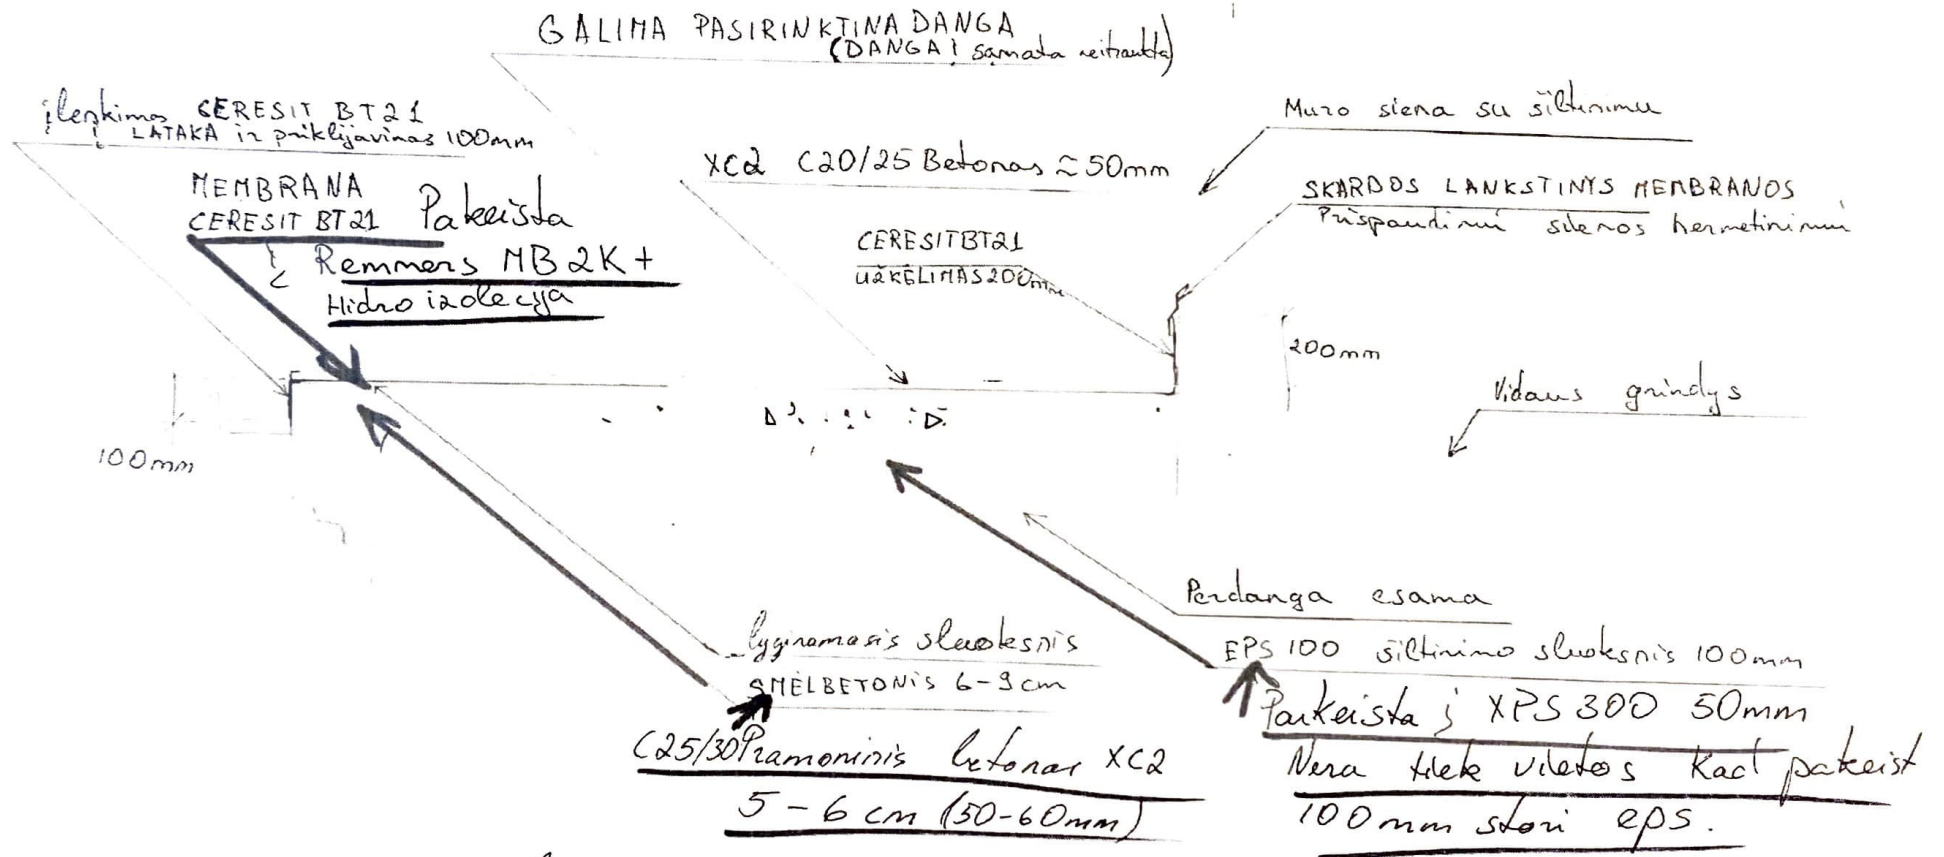 GALIMA PASIRINKTINA DANGA
(DANGA Į samata neitraukta)
įlenkimas CERESIT BT21
Į LATAKA ir priklijavimas 100mm
MEMBRANA
CERESIT BT21 Pakeista
Į Remmers MB 2K+
Hidroizolecija
XC2 C20/25 Betonas ≈50mm
CERESIT BT21
UŽKĖLIMAS 200mm
Muro siena su šiltinimu
SKARDOS LANKSTINYS MEMBRANOS
Prispaudimui sienos hermetinimui
200mm
Vidaus grindys
100mm
Perdanga esama
lyginamasis sluoksnis
SMĖLBETONIS 6-9cm
C25/30 Pramoninis betonas XC2
5-6cm (50-60mm)
EPS 100 šiltinimo sluoksnis 100mm
Pakeista į XPS 300 50mm
Nera tiek vietos kad pakeist
100mm stori eps.